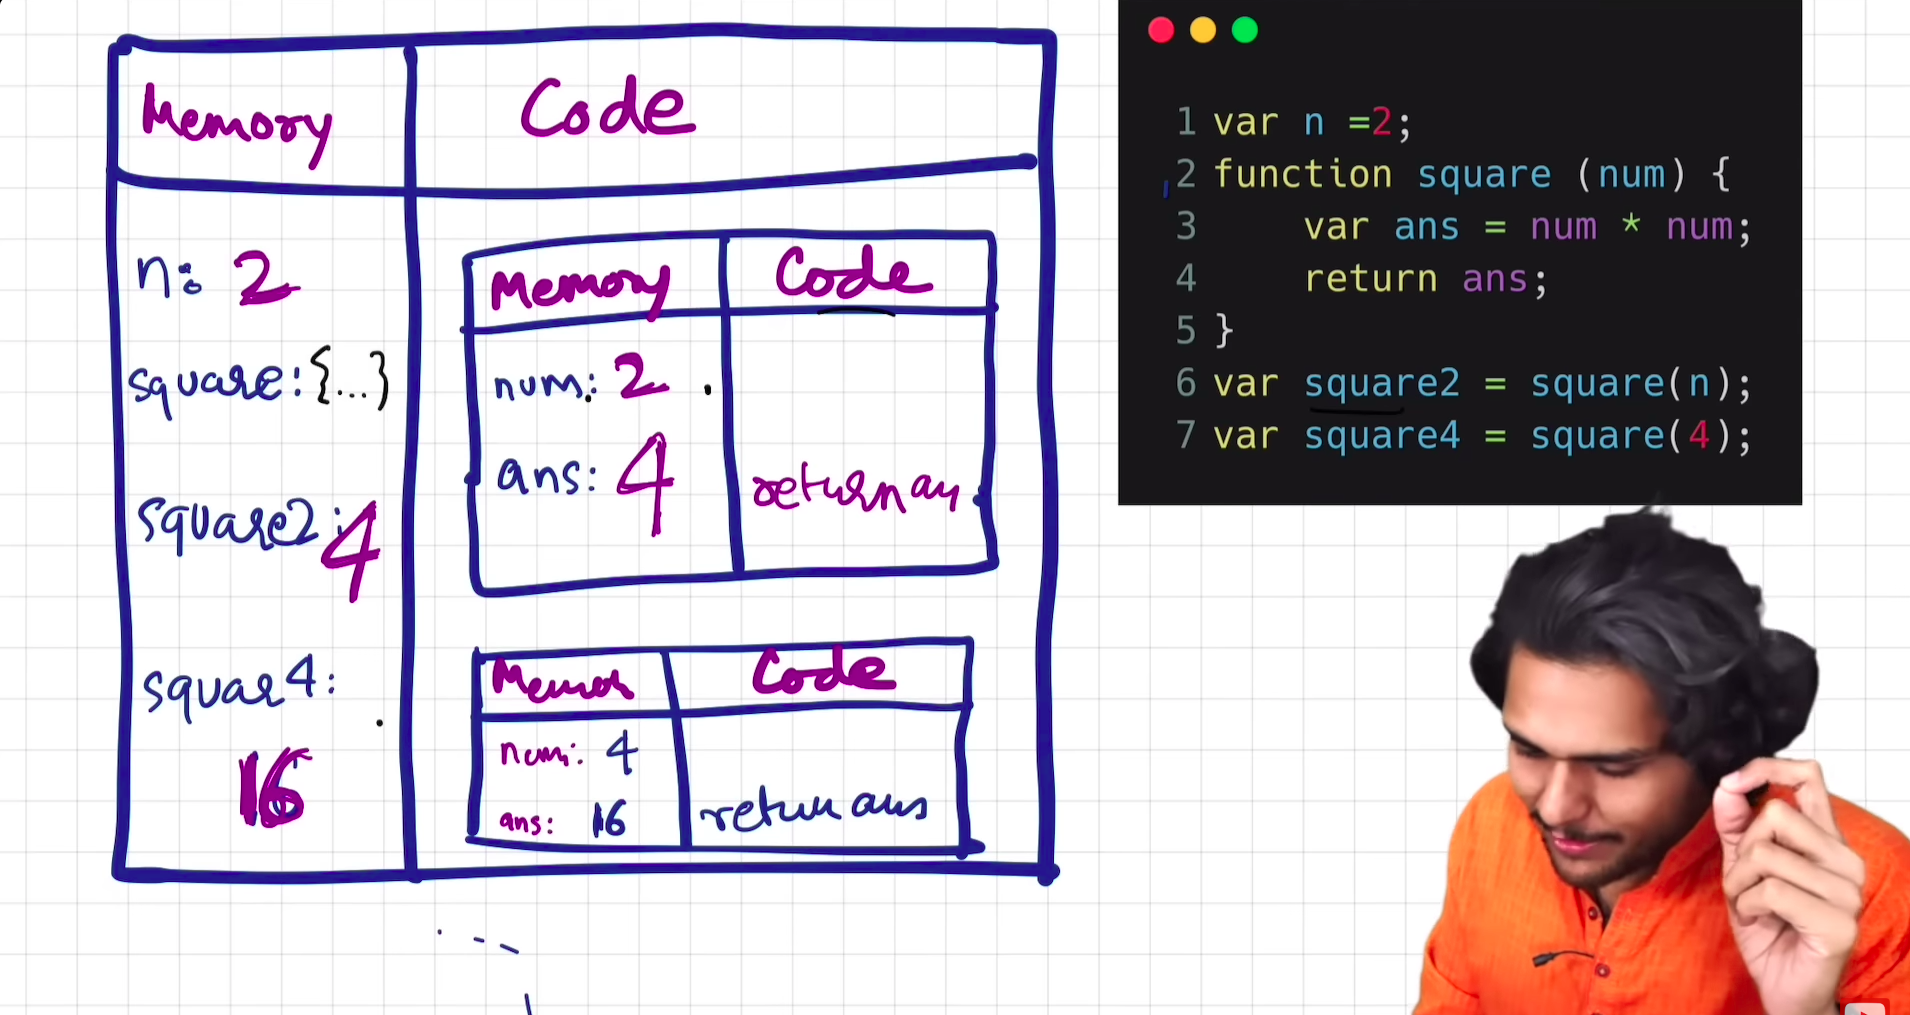 Memory Code
n: 2
square: {...}
square2: 4
squar4:
16
Memory Code
num: 2
ans: 4
return an
Code
num: 4
ans: 16
return ans
1 var n =2;
2 function square (num) {
3 var ans = num * num;
4 return ans;
5 }
6 var square2 = square(n);
7 var square4 = square(4);